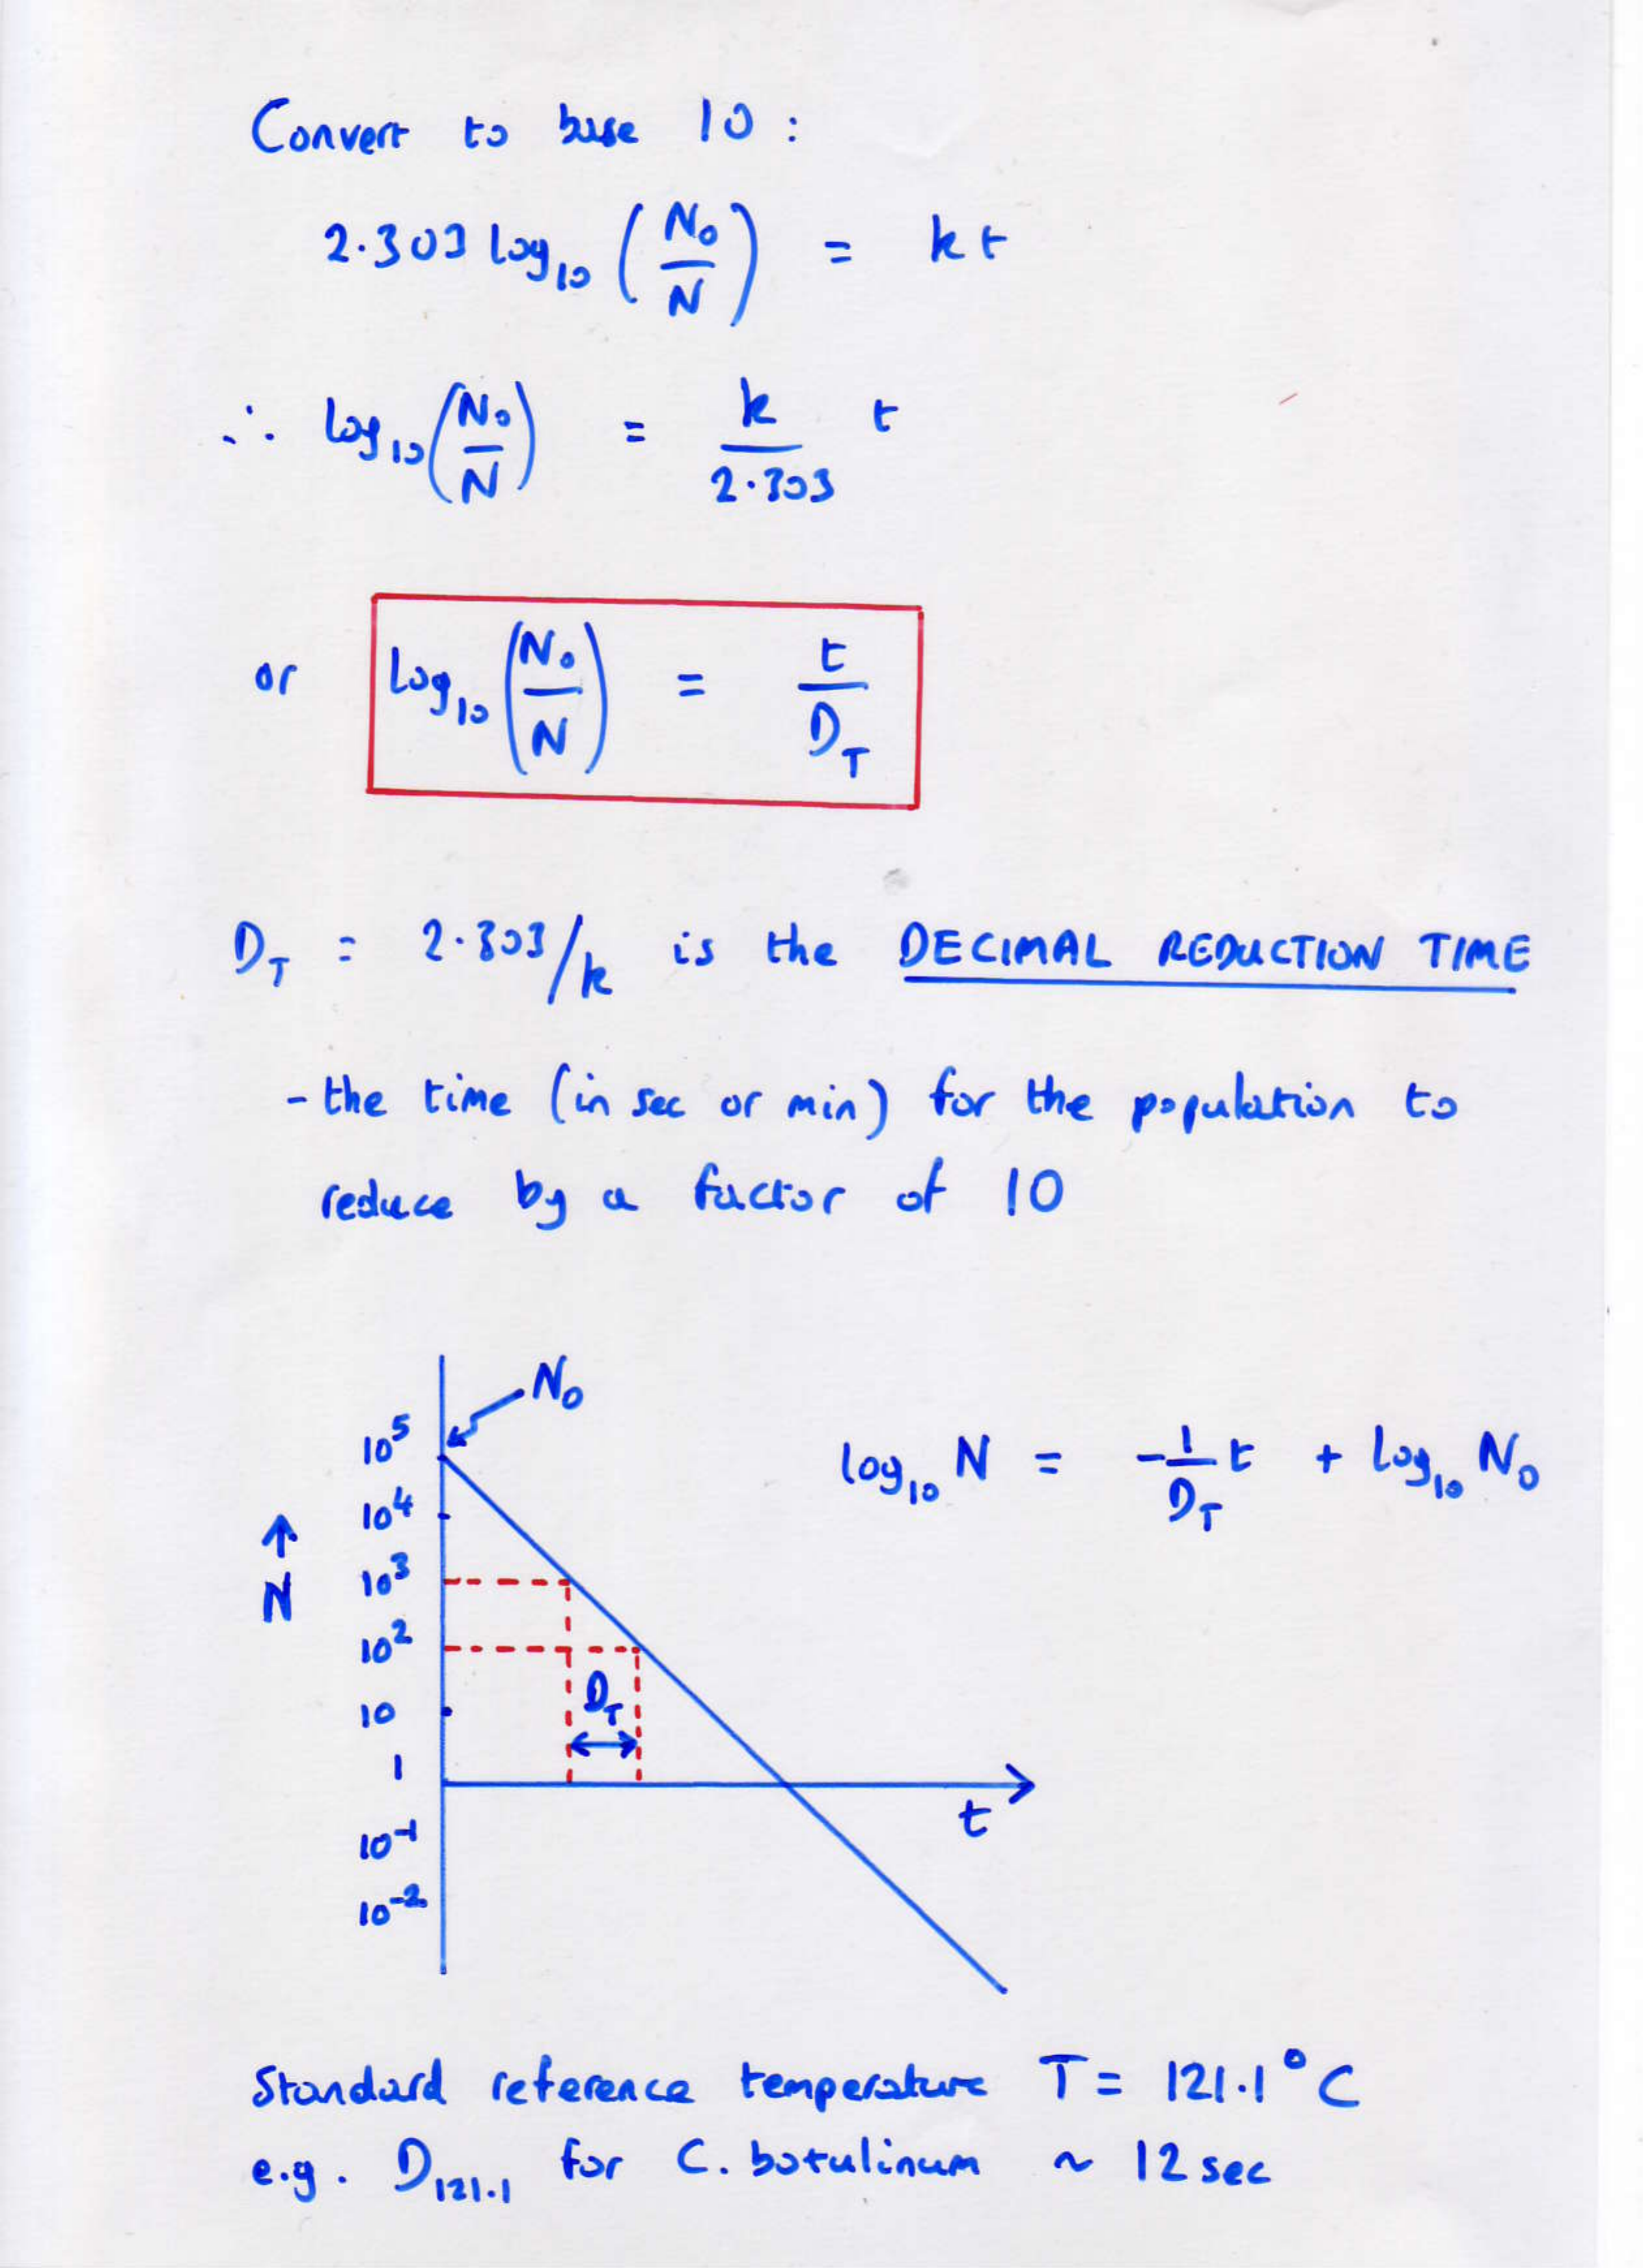 Convert to base 10 :
2.303 log₁₀ (N₀/N) = kt
∴ log₁₀ (N₀/N) = k/2.303 t
or log₁₀ (N₀/N) = t/D_T
D_T = 2.303/k is the DECIMAL REDUCTION TIME
- the time (in sec or min) for the population to
reduce by a factor of 10
N₀
10⁵
log₁₀ N = -1/D_T t + log₁₀ N₀
10⁴
↑
10³
N
10²
D_T
10
1
t
10⁻¹
10⁻²
Standard reference temperature T = 121.1°C
e.g. D₁₂₁.₁ for C. botulinum ~ 12 sec